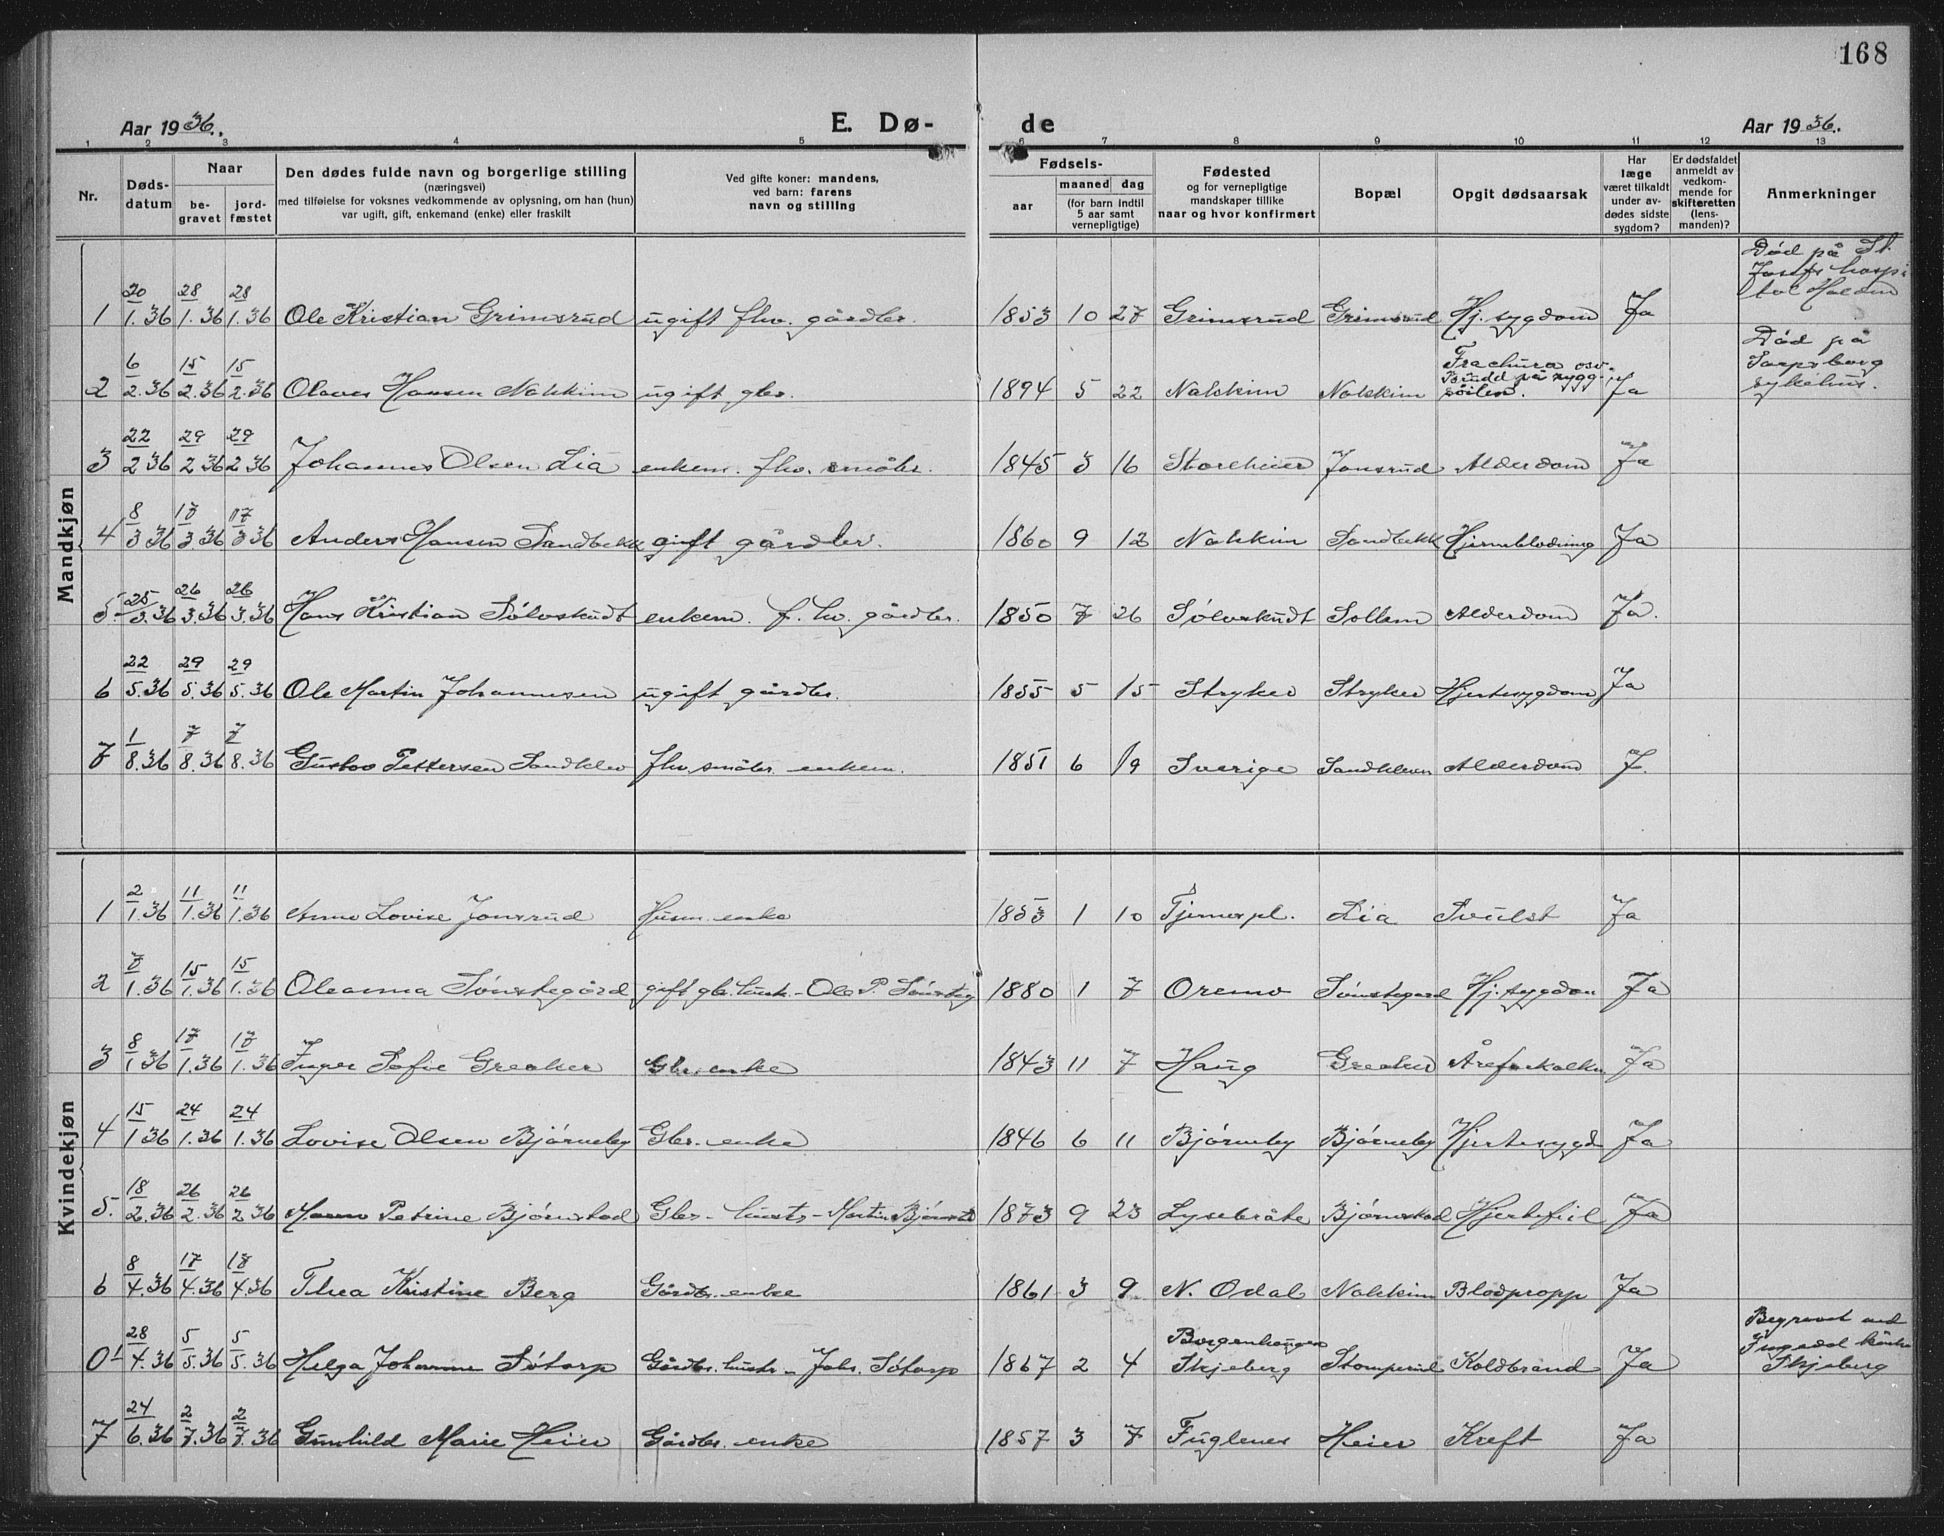 168
Aar 1936. E. Dø- de Aar 1936.
1 2 3 4 5 6 7 8 9 10 11 12 13
Nr.
Døds-
datum
Naar
be-
gravet
jord-
fæstet
Den dødes fulde navn og borgerlige stilling
(næringsvei)
med tilføielse for voksnes vedkommende av oplysning, om han (hun)
var ugift, gift, enkemand (enke) eller fraskilt
Ved gifte koner: mandens,
ved barn: farens
navn og stilling
Fødsels-
aar
maaned dag
(for barn indtil
5 aar samt
vernepligtige)
Fødested
og for vernepligtige
mandskaper tillike
naar og hvor konfirmert
Bopæl
Opgit dødsaarsak
Har
læge
været tilkaldt
under av-
dødes sidste
sygdom?
Er dødsfaldet
anmeldt av
vedkom-
mende for
skifteretten
(lens-
manden)?
Anmerkninger
Mandkjøn
1 20/1.36 28/1.36 28/1.36 Ole Kristian Grimsrud ugift fhv. gårdbr. 1853 10 27 Grimsrud Grimsrud Hj. sygdom Ja Død på St. Josefs hospital Halden
2 6/2.36 15/2.36 15/2.36 Olaves Hansen Nakkim ugift gbr. 1894 5 22 Nakkim Nakkim Brudd på rygg- söilen. Ja Død på Sarpsborg sykehus.
3 22/2 36 29/2 36 29/2 36 Johannes Olsen Lia enkem. fhv. småbr. 1845 3 16 Storeheier Jonsrud Alderdom Ja
4 8/3 36 17/3.36 17/3 36 Anders Hansen Sandbekk gift gårdbr. 1860 9 12 Nakkim Sandbekk Hjerneblödning Ja
5 25/3.36 26/3.36 26/3.36 Hans Kristian Sølvskudt enkem. f. hv. gårdbr. 1850 7 26 Sølvskudt Sollem Alderdom Ja.
6 22/5.36 29/5.36 29/5.36 Ole Martin Johannesen ugift gårdbr. 1855 5 15 Stryker Stryker Hjertesygdom Ja
7 1/8.36 7/8.36 7/8.36 Gustav Pettersen Sandklev fhv. småbr. enkem. 1851 6 19 Sverige Sandkleven Alderdom J.
Kvindekjøn
1 2/1.36 11/1.36 11/1.36 Anne Lovise Jonsrud Husm. enke 1853 1 10 Tjernespl. Lia Svulst Ja
2 7/1.36 15/1.36 15/1.36 Oleanna Sønstegård gift gbr. hustr. - Ole P. Sønsteg 1880 1 7 Oremo Sønstegard Hj. sygdom Ja
3 8/1 36 17/1.36 17/1.36 Inger Sofie Greaker Gbr. enke 1843 11 7 Haug Greaker Åreforkalkn Ja
4 15/1 36 24/1.36 24/1.36 Lovise Olsen Bjørneby Gbr. enke 1846 6 11 Bjørneby Bjørneby Hjertesygd Ja
5. 18/2.36 26/2.36 26/2 36 Maren Petrine Bjørnstad Gbr- hustr- Martin Bjørnst 1873 9 23 Lysebråte Bjørnstad Hjertefeil Ja
6 8/4.36 17/4.36 17/4.36 Thea Kristine Berg Gårdbr. enke 1861 3 9 N. Odal Nakkim Blodpropp Ja
01 28/4.36 5/5.36 5/5.36 Helga Johanne Søtorp Gårdbr. hustr - Johs. Søtorp 1867 2 4 Borgenhaugen Skjeberg Stomperud Koldbrand Ja Begravet ved Ingedal kirke Skjeberg
7 24/6.36 2/7.36 2/7.36 Gunhild Marie Heier Gårdbr. enke 1857 3 7 Fuglenes Heier Kreft Ja